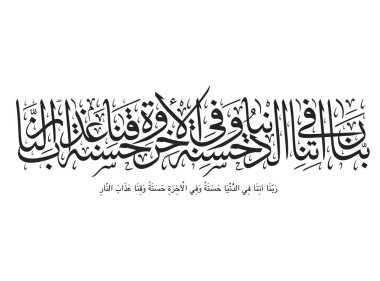 ربنا اتنا في الدنيا حسنة وفي الآخرة حسنة وقنا عذاب النار
رَبَّنَا اٰتِنَا فِي الدُّنْيَا حَسَنَةً وَفِي الْاٰخِرَةِ حَسَنَةً وَقِنَا عَذَابَ النَّارِ